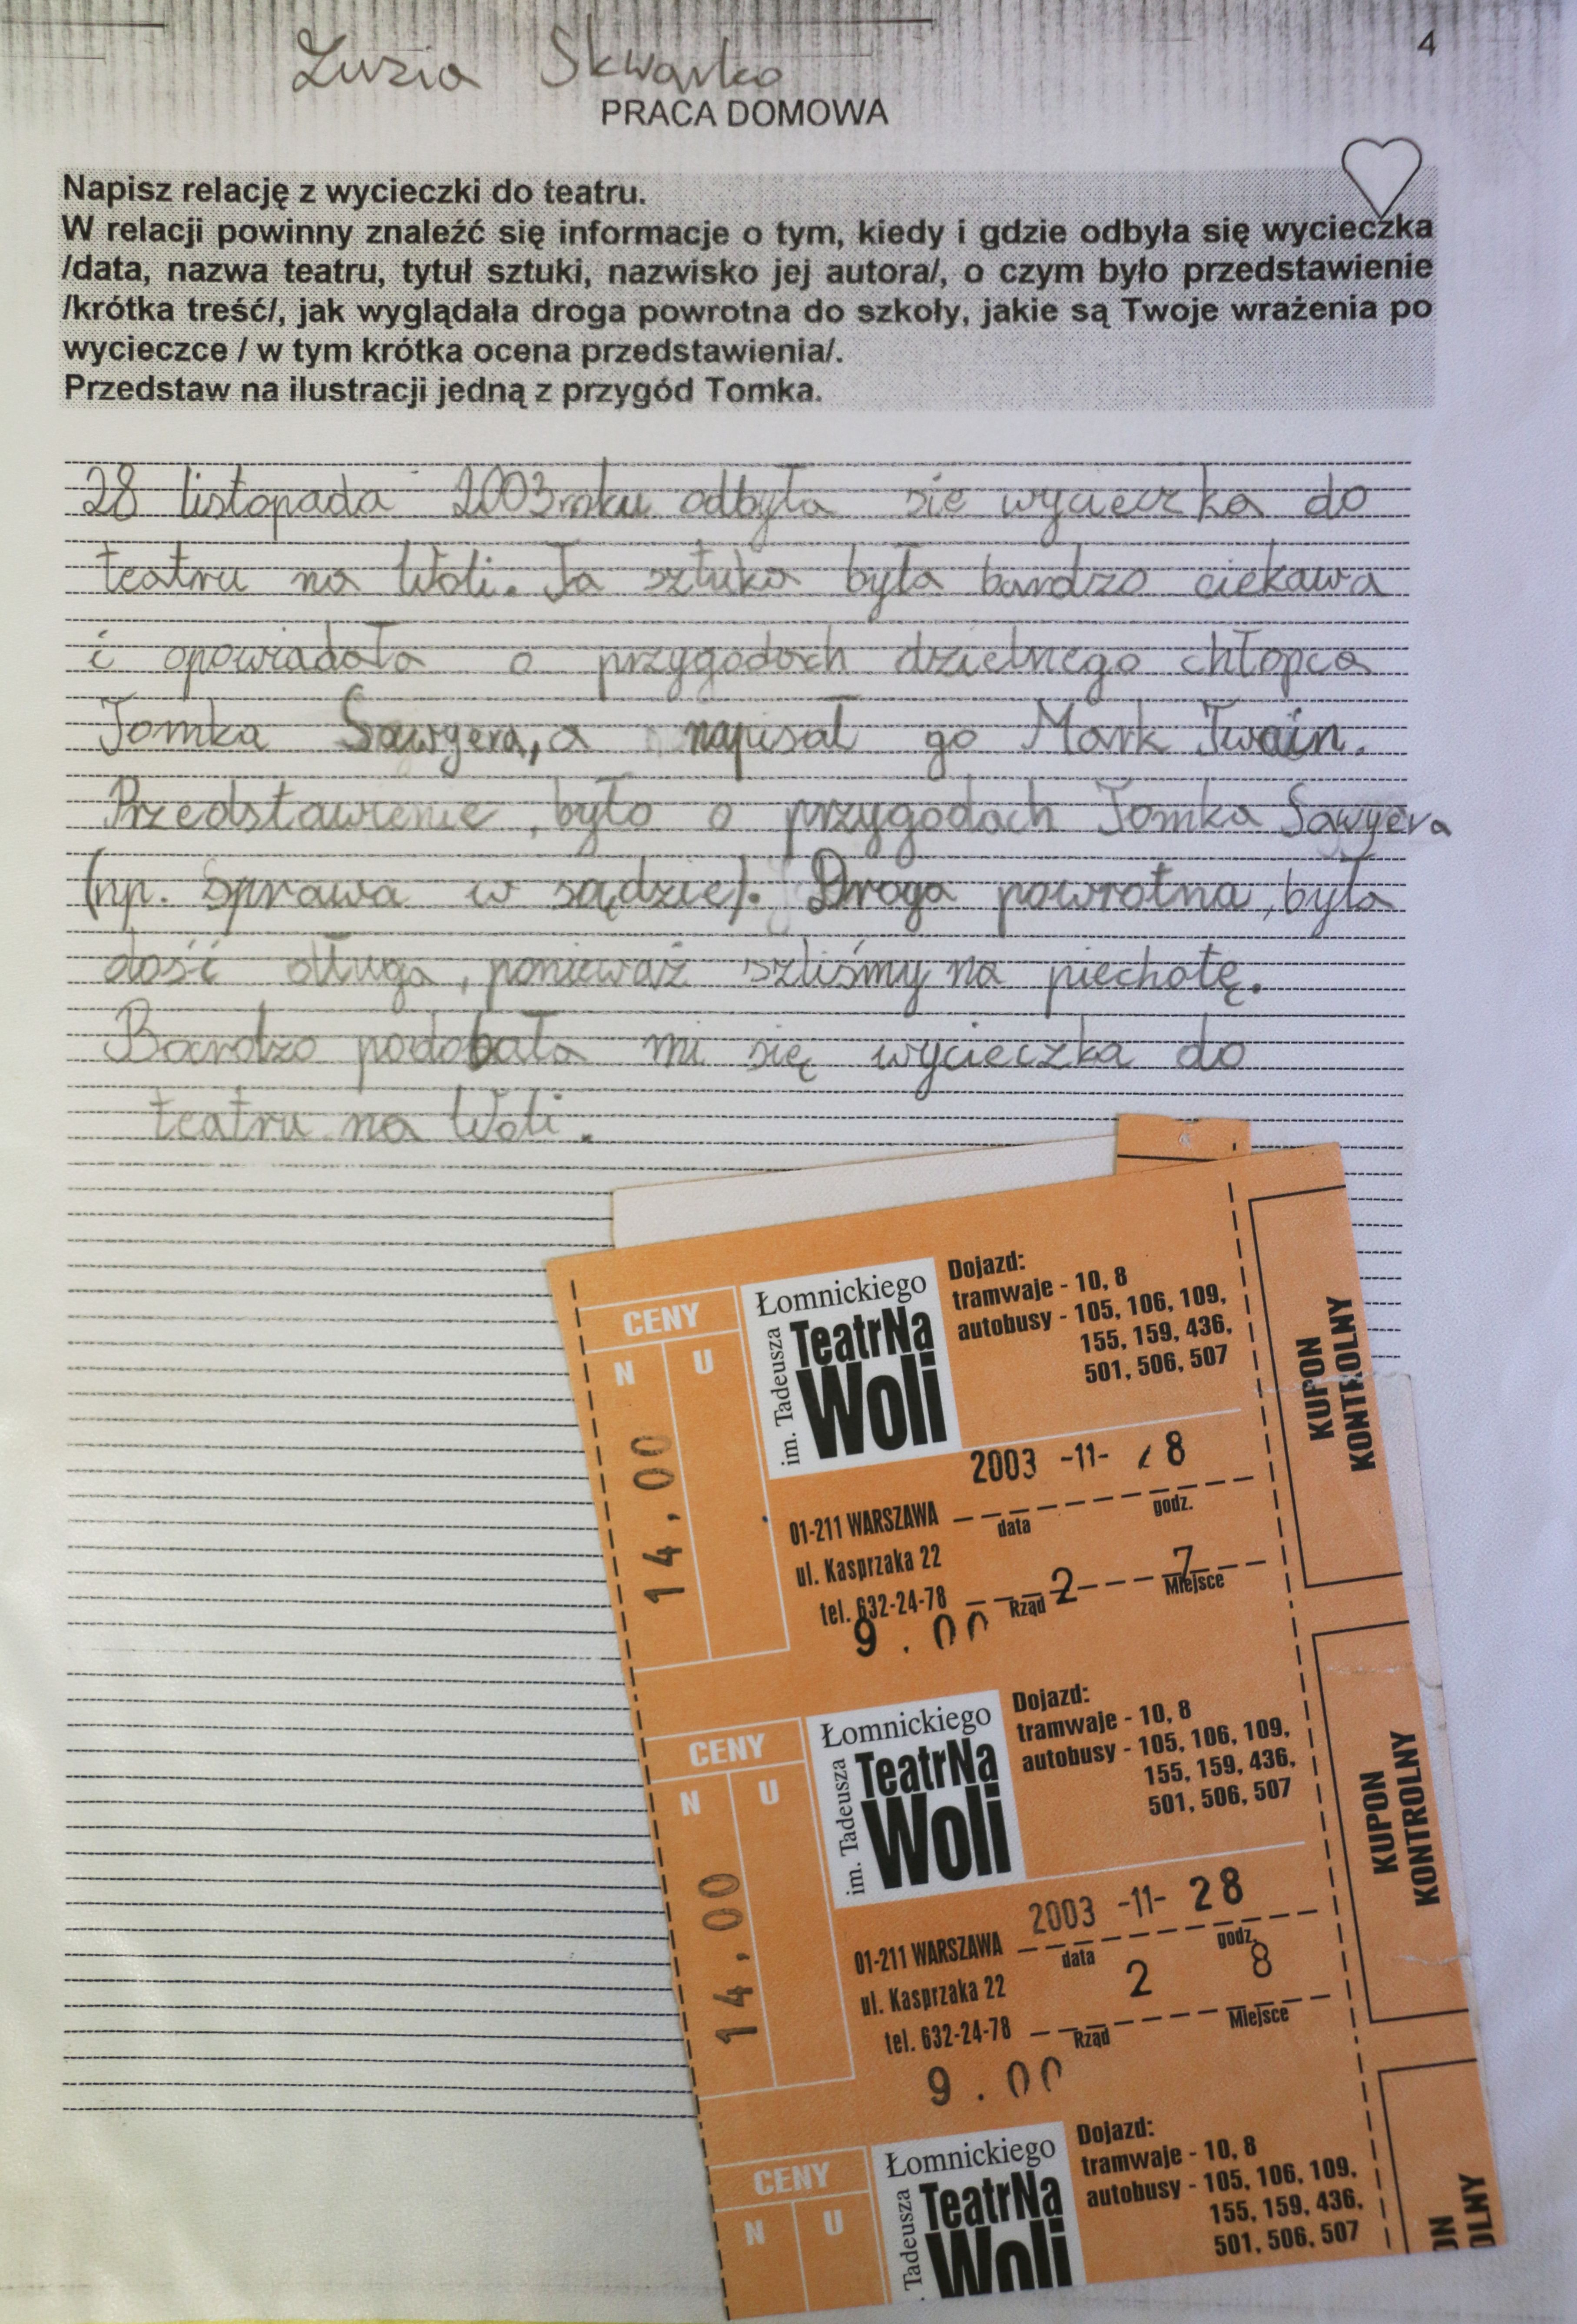 Zuzia Skwarka
4
PRACA DOMOWA
Napisz relację z wycieczki do teatru.
W relacji powinny znaleźć się informacje o tym, kiedy i gdzie odbyła się wycieczka
/data, nazwa teatru, tytuł sztuki, nazwisko jej autora/, o czym było przedstawienie
/krótka treść/, jak wyglądała droga powrotna do szkoły, jakie są Twoje wrażenia po
wycieczce / w tym krótka ocena przedstawienia/.
Przedstaw na ilustracji jedną z przygód Tomka.
28 listopada 2003 roku odbyła sie wycieczka do
teatru na Woli. Ta sztuka była bardzo ciekawa
i opowiadała o przygodach dzielnego chłopca
Tomka Sawyera, a napisał go Mark Twain.
Przedstawienie, było o przygodach Tomka Sawyera
(np. sprawa w sądzie). Droga powrotna, była
dość długa, ponieważ szliśmy na piechotę.
Bardzo podobała mi się wycieczka do
teatru na Woli.
CENY
N U
14,00
im. Tadeusza
Łomnickiego
TeatrNa
Woli
Dojazd:
tramwaje - 10, 8
autobusy - 105, 106, 109,
155, 159, 436,
501, 506, 507
2003 -11- 8
01-211 WARSZAWA
data godz.
ul. Kasprzaka 22
2 7
tel. 632-24-78 Rząd Miejsce
9.00
KUPON
KONTROLNY
CENY
N U
14,00
im. Tadeusza
Łomnickiego
TeatrNa
Woli
Dojazd:
tramwaje - 10, 8
autobusy - 105, 106, 109,
155, 159, 436,
501, 506, 507
2003 -11- 28
01-211 WARSZAWA
data godz.
ul. Kasprzaka 22
2 8
tel. 632-24-78 Rząd Miejsce
9.00
KUPON
KONTROLNY
CENY
N U
Tadeusza
Łomnickiego
TeatrNa
Woli
Dojazd:
tramwaje - 10, 8
autobusy - 105, 106, 109,
155, 159, 436,
501, 506, 507
ON
OLNY